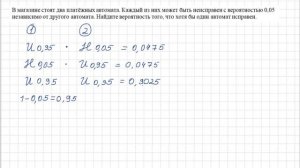 В магазине стоят два платёжных автомата. Каждый из них может быть неисправен с вероятностью 0,05
независимо от другого автомата. Найдите вероятность того, что хотя бы один автомат исправен.
① ②
И 0,95 · Н 0,05 = 0,0475
Н 0,05 · И 0,95 = 0,0475
И 0,95 И 0,95 = 0,9025
1-0,05=0,95